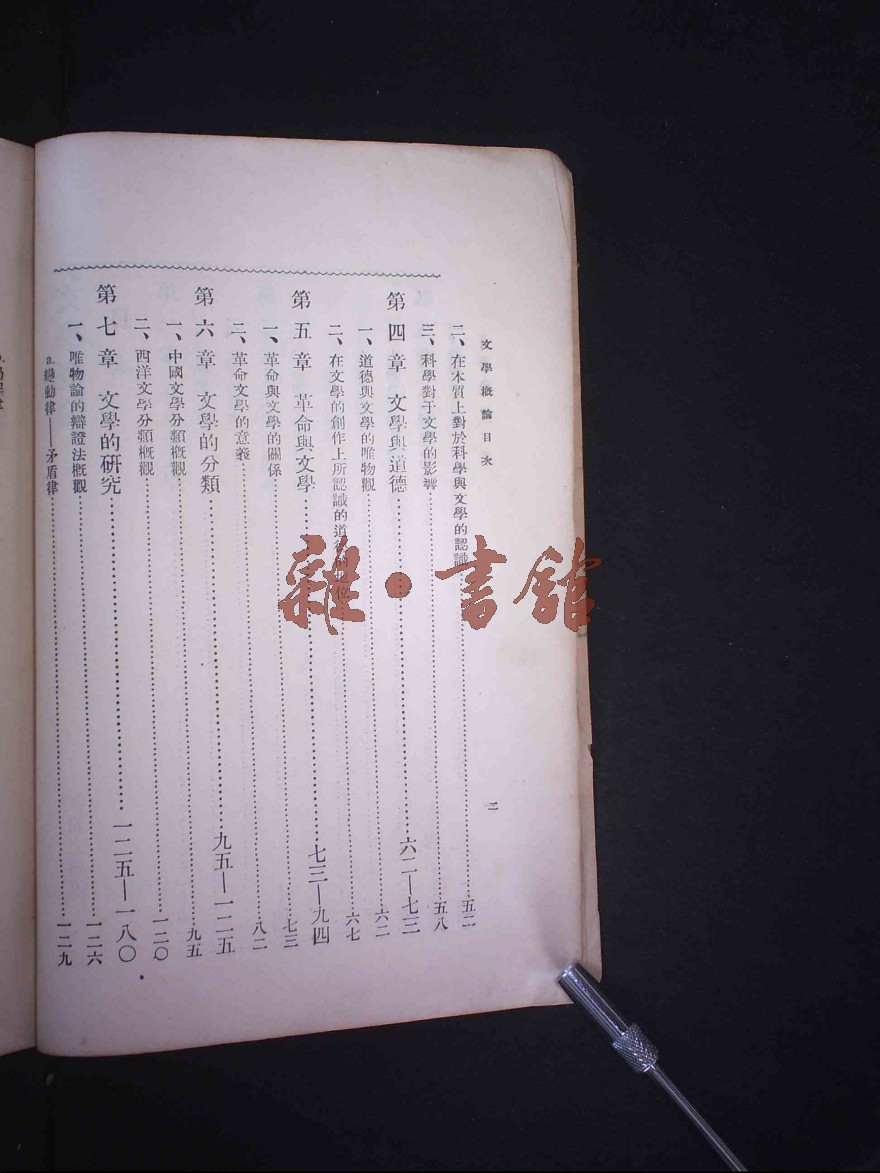 文學概論目次
二
二、在本質上對於科學與文學的認識……五二
三、科學對于文學的影響……五八
第四章　文學與道德……六二—七三
一、道德與文學的唯物觀……六二
二、在文學的創作上所認識的道德的地位……六七
第五章　革命與文學……七三—九四
一、革命與文學的關係……七三
二、革命文學的意義……八二
第六章　文學的分類……九五—一二五
一、中國文學分類概觀……九五
二、西洋文學分類概觀……一二〇
第七章　文學的研究……一二五—一八〇
一、唯物論的辯證法概觀……一二六
a. 變動律——矛盾律……一二九
雜·書館